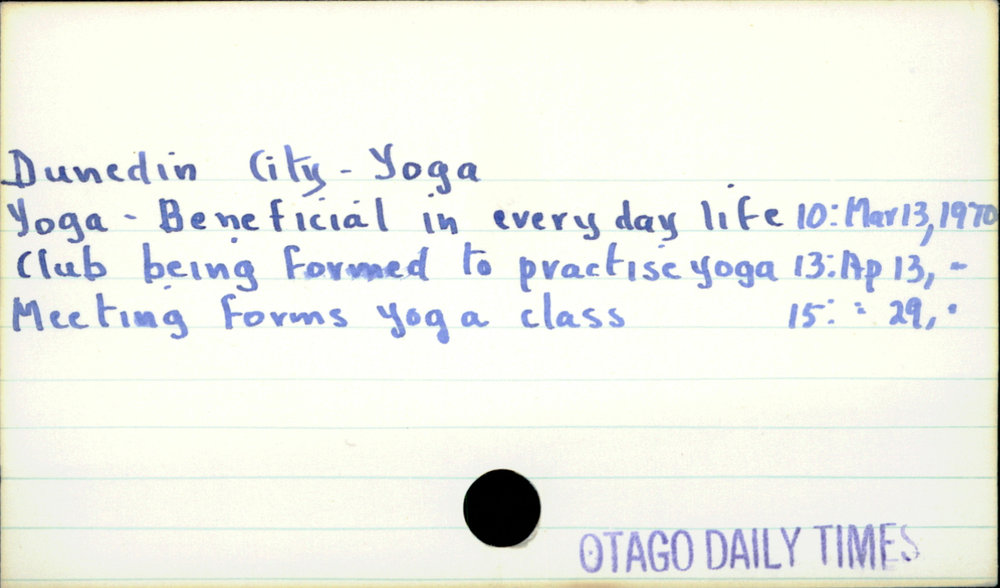 Dunedin City - Yoga
Yoga - Beneficial in every day life 10: Mar 13, 1970
Club being formed to practise yoga 13: Ap 13, -
Meeting forms yoga class 15: = 29, -
OTAGO DAILY TIMES